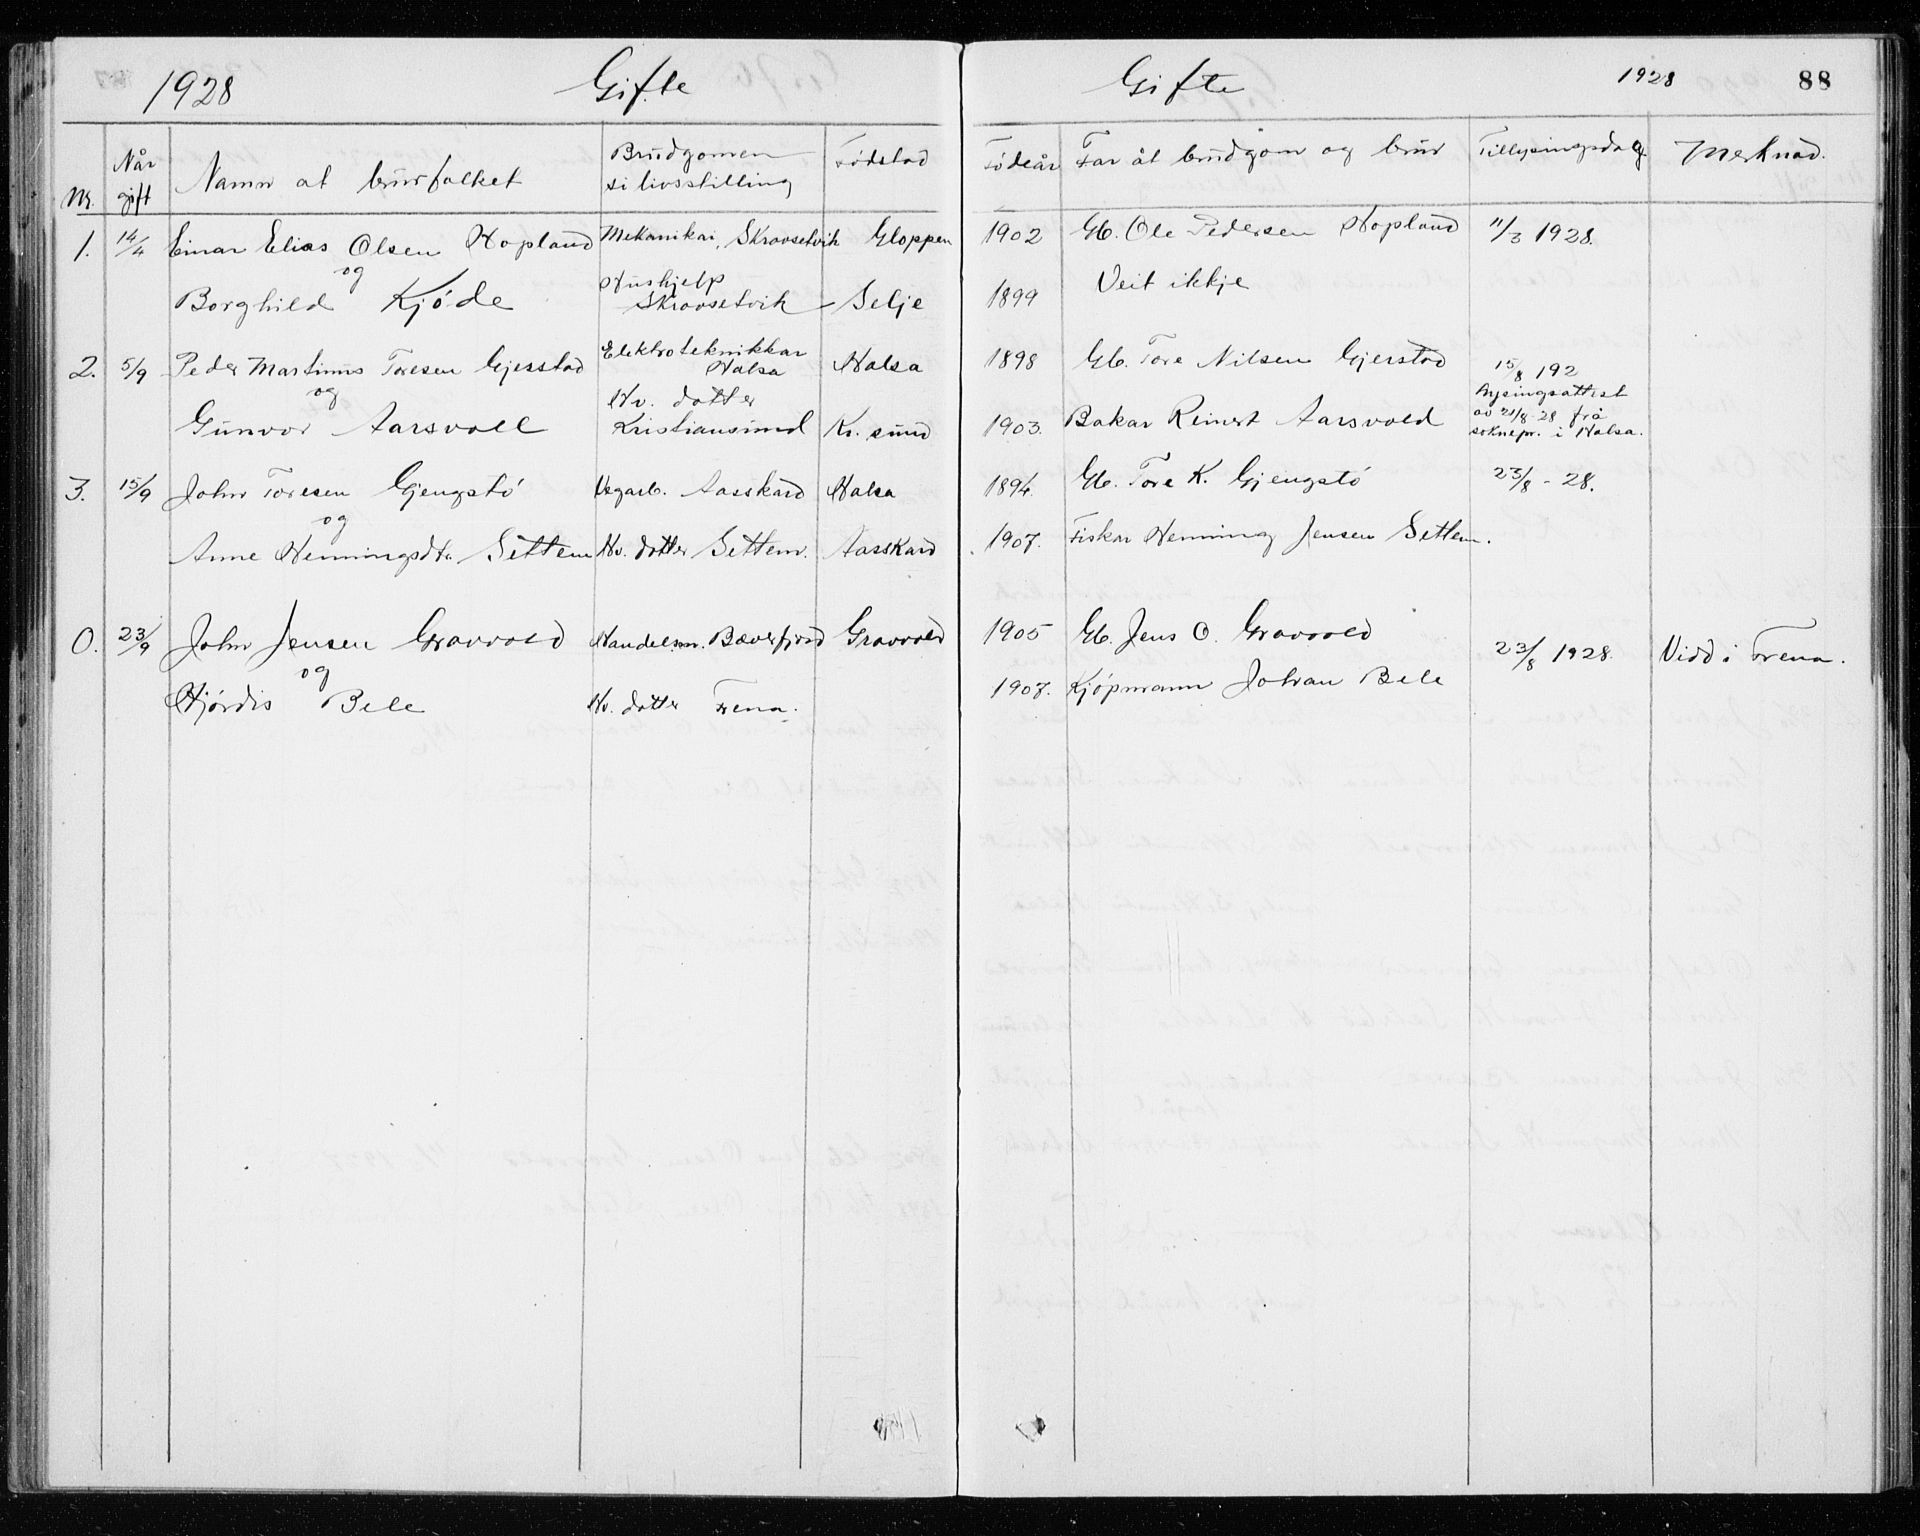 1928 Gifte
Nr. Når gift Namn at brurfolket Brudgomen si livsstilling Fødstad
1. 14/4 Einar Elias Olsen Hopland Mekanikar, Skravsetvik Gloppen
og
Borghild Kjøde Hushjelp Skravsetvik Selje
2. 5/9 Peder Martinus Toresen Gjerstad Elektroteknikkar Halsa Halsa
og
Gunvor Aarsvoll Hv. dotter Kristiansund Kr. sund
3. 15/9 John Toresen Gjengstó Vegarb. Aasskard Halsa
og
Anne Henningsdtr Settem Hv. dotter Settem. Aasskard
0. 23/9 John Jensen Gravvold Handelsm. Bæverfjord Gravvold
og
Hjørdis Bele Hv. dotter Frena.
Gifte 1928 88
Fødeår Far åt brudgom og brur Tillysingsdag Merknad.
1902 Gb. Ole Pedersen Hopland 11/3 1928.
1899 Veit ikkje
1898 Gb. Tore Nilsen Gjerstad 15/8 192
1903. Bakar Reinert Aarsvold Lysingsattest
av 21/8-28 frå
soknepr. i Halsa.
1894. Gb. Tore K. Gjengstó 23/8 - 28.
1907. Fiskar Henning Jensen Settem.
1905 Gb. Jens O. Gravvold 23/8 1928. Vidd i Frena.
1907. Kjøpmann Johan Bele